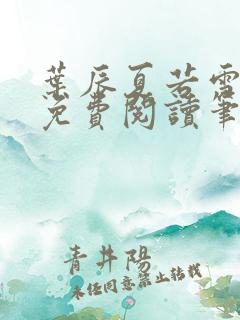 葉辰夏若雪
免費閱讀筆
青井陽
未經同意禁止轉載